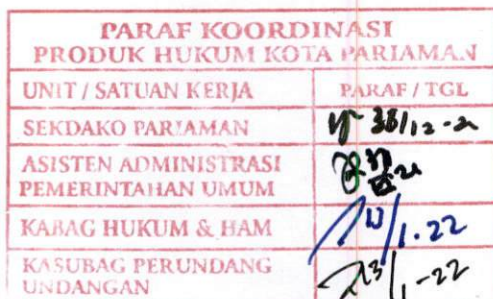 PARAF KOORDINASI
PRODUK HUKUM KOTA PARIAMAN
UNIT / SATUAN KERJA PARAF / TGL
SEKDAKO PARIAMAN
ASISTEN ADMINISTRASI
PEMERINTAHAN UMUM
KABAG HUKUM & HAM 13/1.22
KASUBAG PERUNDANG
UNDANGAN 13/1-22